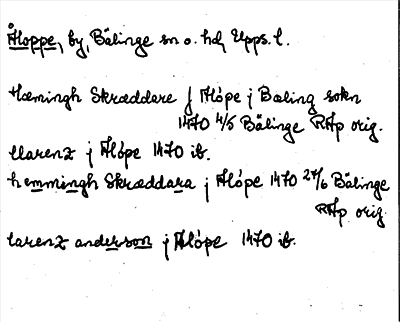 Åloppe, by, Bälinge sn o. hd, Upps. l.
Hæmingh Skræddare j Alópe j Bæling sokn
1470 4/5 Bälinge RAp orig.
llarenz j Alópe 1470 ib.
hemmingh Skræddara j Alópe 1470 24/6 Bälinge
RAp orig
larenz anderson j Alópe 1470 ib.